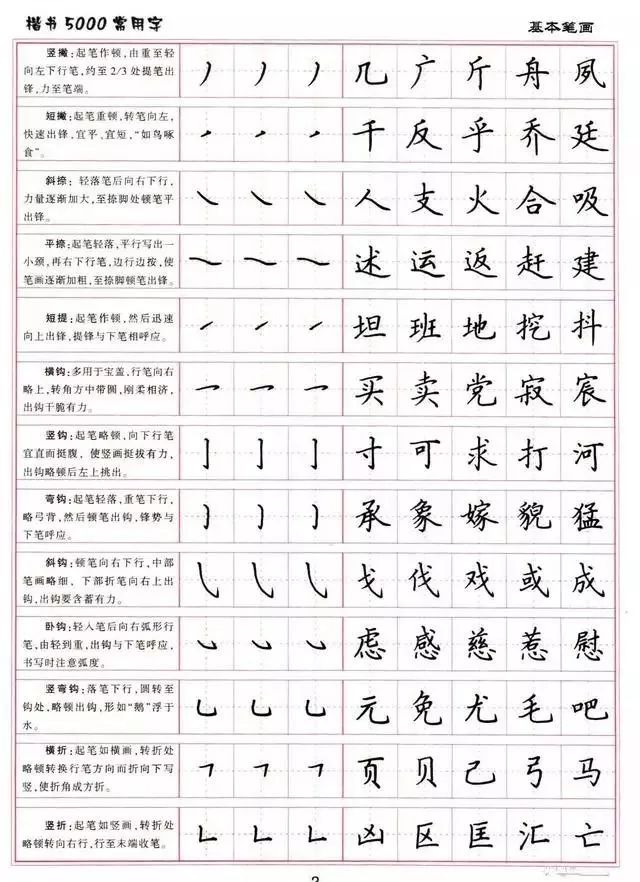 楷书5000常用字
基本笔画
竖撇：起笔作顿，由重至轻
向左下行笔，约至2/3处提笔出
锋，力至笔端。
几 广 斤 舟 夙
短撇：起笔重顿，转笔向左，
快速出锋，宜平、宜短，“如鸟啄
食”。
千 反 乎 乔 廷
斜捺：轻落笔后向右下行，
力量逐渐加大，至捺脚处顿笔平
出锋。
人 支 火 合 吸
平捺：起笔轻落，平行写出一
小颈，再右下行笔，边行边按，使
笔画逐渐加粗，至捺脚顿笔出锋。
述 运 返 赶 建
短提：起笔作顿，然后迅速
向上出锋，提锋与下笔相呼应。
坦 班 地 挖 抖
横钩：多用于宝盖，行笔向右
略上，转角方中带圆，刚柔相济，
出钩干脆有力。
买 卖 党 寂 宸
竖钩：起笔略顿，向下行笔
宜直而挺腹，使竖画挺拔有力，
出钩略顿后左上挑出。
寸 可 求 打 河
弯钩：起笔轻落，重笔下行，
略弓背，然后顿笔出钩，锋势与
下笔呼应。
承 象 嫁 貌 猛
斜钩：顿笔向右下行，中部
笔画略细，下部折笔向右上出
钩，出钩要含蓄有力。
戈 伐 戏 或 成
卧钩：轻入笔后向右弧形行
笔，由轻到重，出钩与下笔呼应，
书写时注意弧度。
虑 感 慈 惹 慰
竖弯钩：落笔下行，圆转至
钩处，略顿出钩，形如“鹅”浮于
水。
元 免 尤 毛 吧
横折：起笔如横画，转折处
略顿转换行笔方向而折向下写
竖，使折角成方折。
页 贝 己 弓 马
竖折：起笔如竖画，转折处
略顿转向右行，行至末端收笔。
凶 区 匡 汇 亡